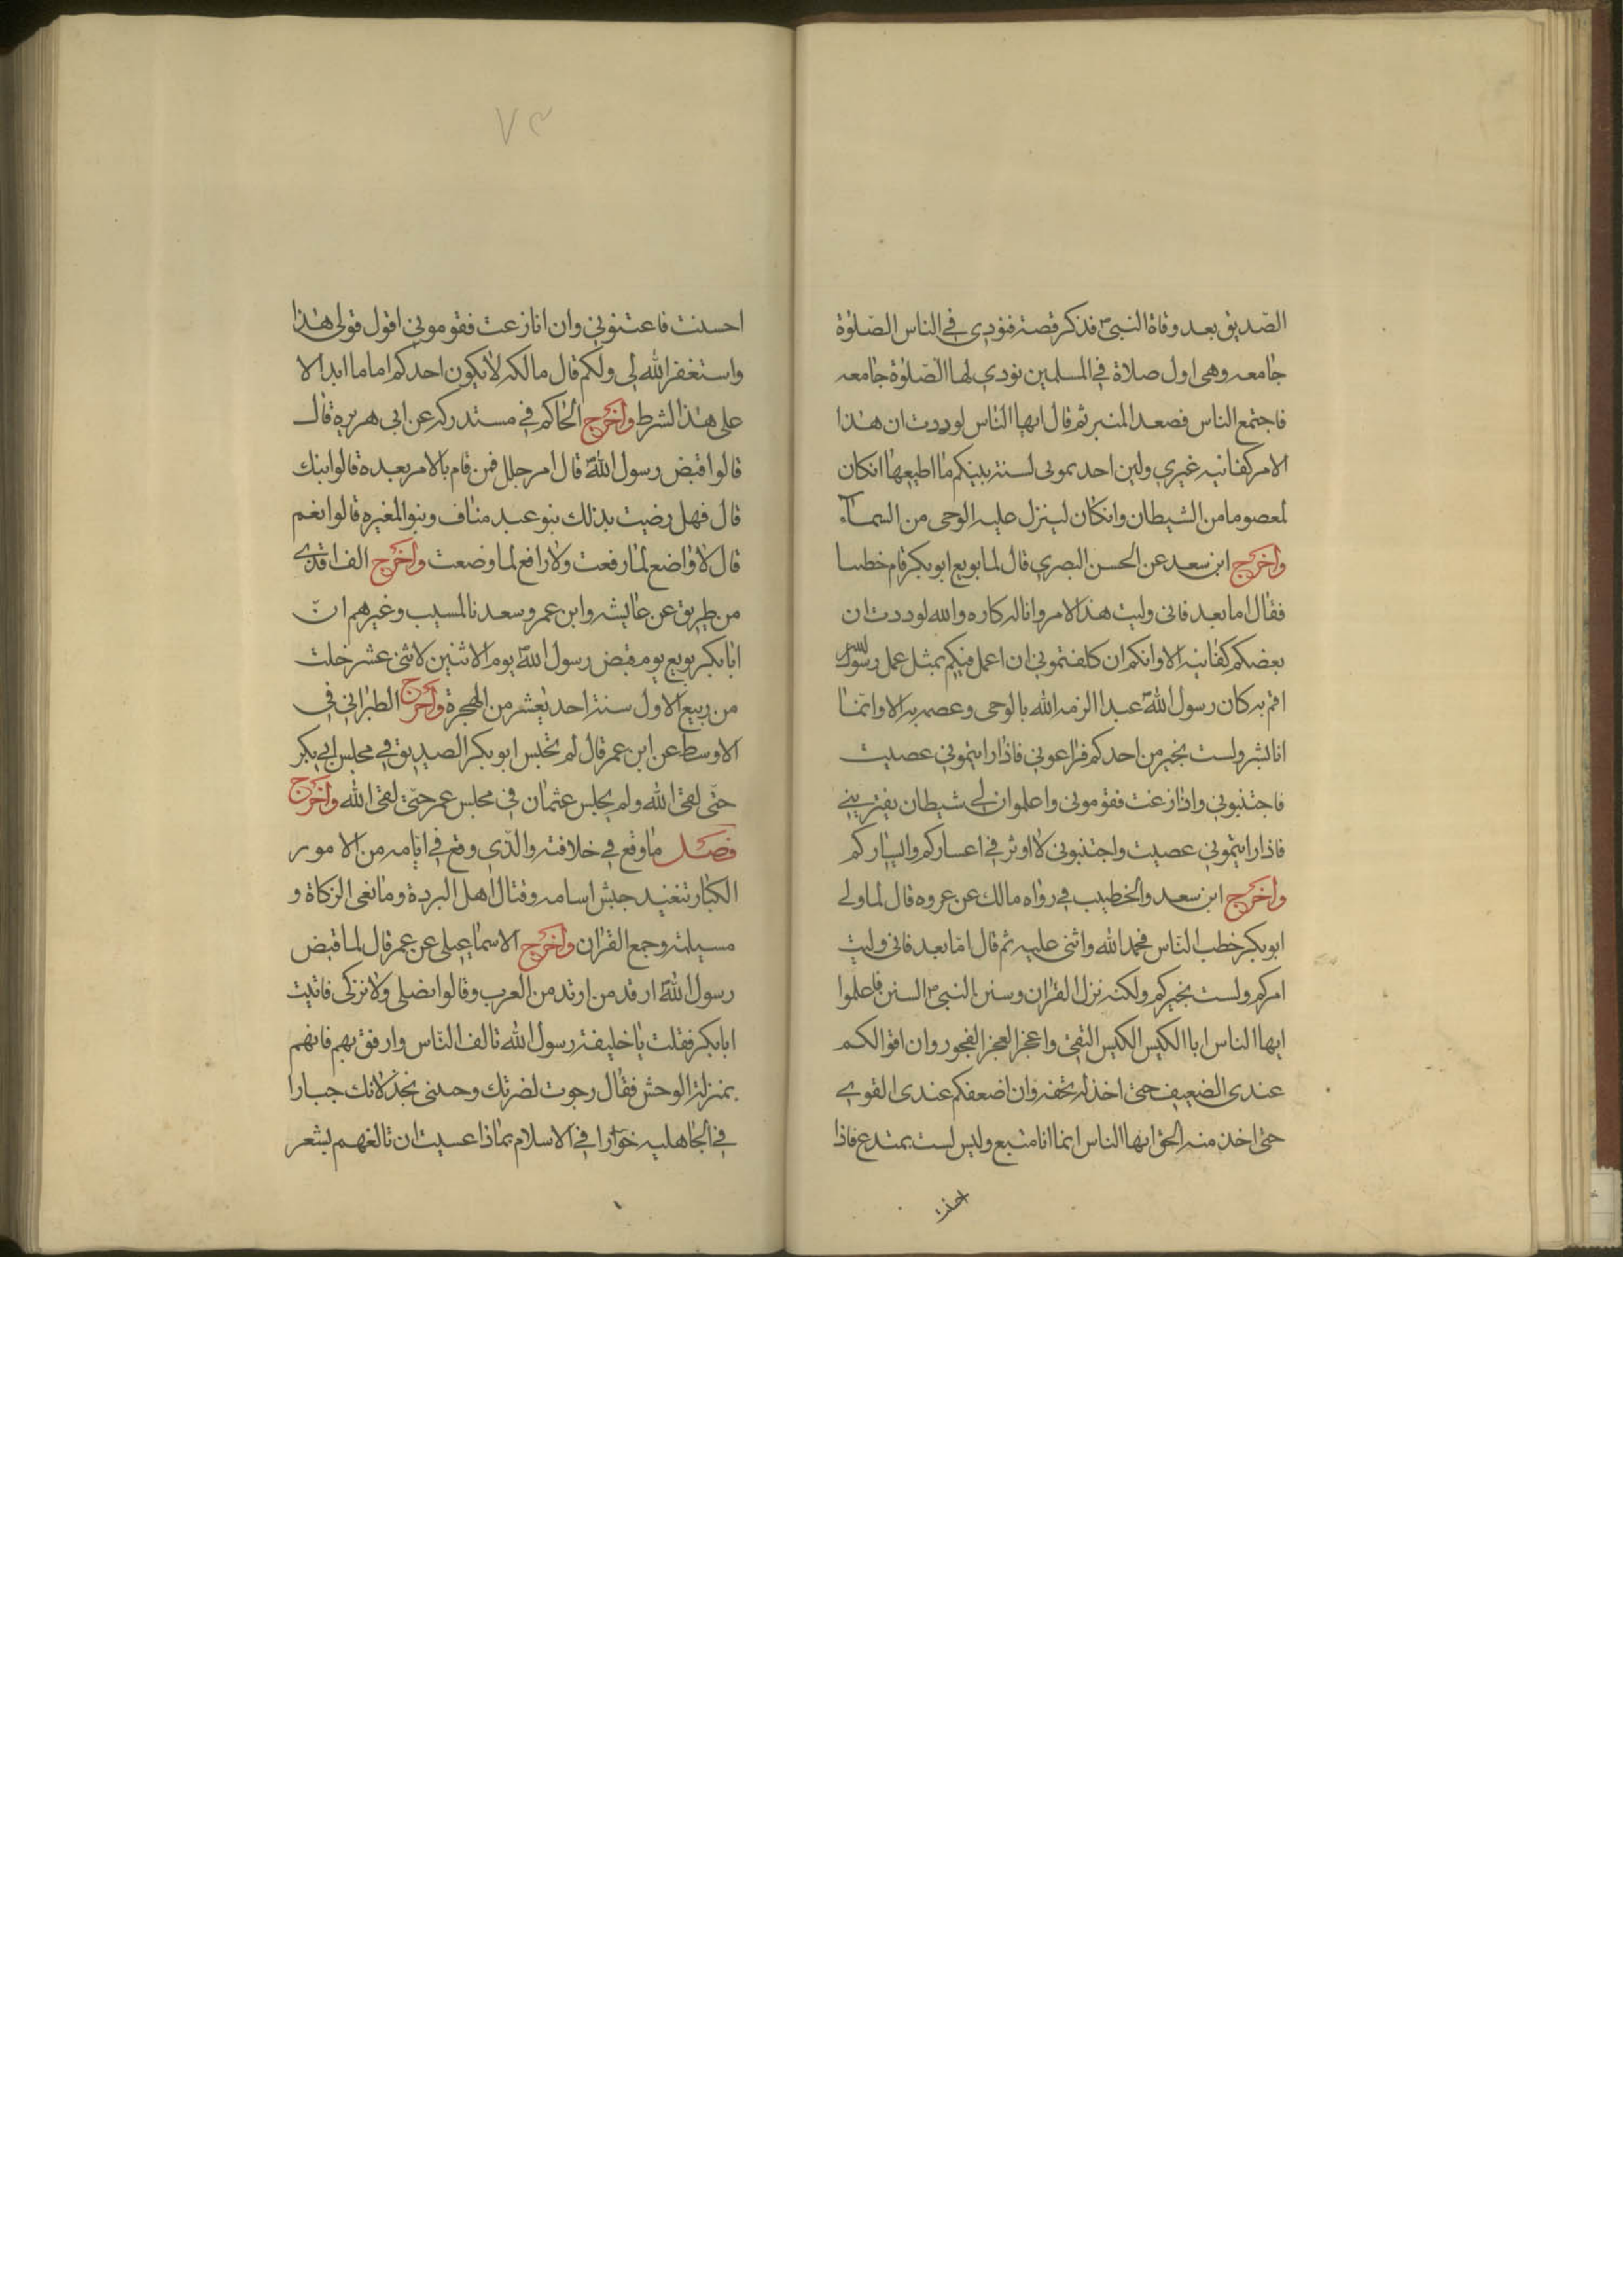 الصّديق بعد وفاة النبىّ فذكر قصته فنودى فى الناس الصّلوٰة
جامعه وهى اول صلاة فى المسلمين نودى لها الصّلوٰة جامعه
فاجتمع الناس فصعد المنبر ثم قال ايها الناس لوددت ان هذا
الامر كفانيه غيرى ولين احد تمونى لسنة نبيكم ما اطيعها انكان
لمعصوما من الشيطان وانكان لينزل عليه الوحى من السمآء
واخرج ابن سعد عن الحسن البصرى قال لما بويع ابوبكر قام خطبا
فقال اما بعد فانى وليت هذا الامر وانا له كاره والله لوددت ان
بعضكم كفانيه الا وانكم ان كلفتمونى ان اعمل فيكم بمثل عمل رسول الله
اقم به كان رسول اللهّ عبدا الزمه الله بالوحى وعصمه به الا وانما
انا بشر ولست بخير من احدكم فراعونى فاذا رايتمونى عصيت
فاجتنبونى واذا زغت فقومونى واعلموا ان لى شيطان يغترينى
فاذا رايتمونى عصيت واجتنبونى لا اوثر فى اعساركم وايساركم
واخرج ابن سعد والخطيب فى رواه مالك عن عروه قال لما ولى
ابوبكر خطب الناس فحمد الله واثنى عليه ثم قال امّا بعد فانى وليت
امركم ولست بخيركم ولكنه نزل القران وسنن النبىّ السنن فاعلموا
ايها الناس ابا الكيس الكيس التقى واعجز العجز الفجور وان اقوالكم
عندى الضعيف حتى اخذ له بحقه وان اضعفكم عندى القوى
حتى اخذ منه الحق ايها الناس انما انا متبع وليس لست بمتدع فاذا
احسنت
٧٣
احسنت فاعتنونى وان انا زعت فقومونى اقول قولى هذا
واستغفر الله لى ولكم قال مالكه لا يكون احدكم اماما ابدا الا
على هذا الشرط واخرج الحاكم فى مستدركه عن ابى هريره قال
قالوا قبض رسول اللهّ قال امر جلل فمن قام بالامر بعده قالوا ابنك
قال فهل رضيت بذلك بنو عبد مناف وبنو المغيره قالوا نعم
قال لا واضع لما رفعت ولا رافع لما وضعت واخرج الفاقدى
من طريق عن عايشه وابن عمر وسعد نا لمسيب وغيرهم انّ
ابابكر بويع يوم قبض رسول اللهّ يوم الاثنين لاثنى عشر خلت
من ربيع الاول سنة احد يعشر من الهجرة واخرج الطبرانى فى
الاوسط عن ابن عمر قال لم تجلس ابوبكر الصديق فى مجلس ابى بكر
حتّى لقى الله ولم يجلس عثمان فى مجلس عمر حتى لقى الله واخرج
فصل ما وقع فى خلافته والذى وقع فى ايامه من الامور
الكبار تنغيد جيش اسامه وقتال اهل البردة ومانعى الزكاة و
مسيلمة وجمع القران واخرج الاسماعيلى عن عمر قال لما قبض
رسول اللهّ ارقد من اوتد من العرب وقالوا نصلى ولا نزكى فاتيت
ابابكر فقلت يا خليفة رسول الله تالف الناس وارفق بهم فانهم
بمنزلة الوحش فقال رجوت لضرتك وحبنى بخذلانك جبارا
فى الجاهليه خوارا فى الاسلام بماذا عسيت ان تالفهم بشعر